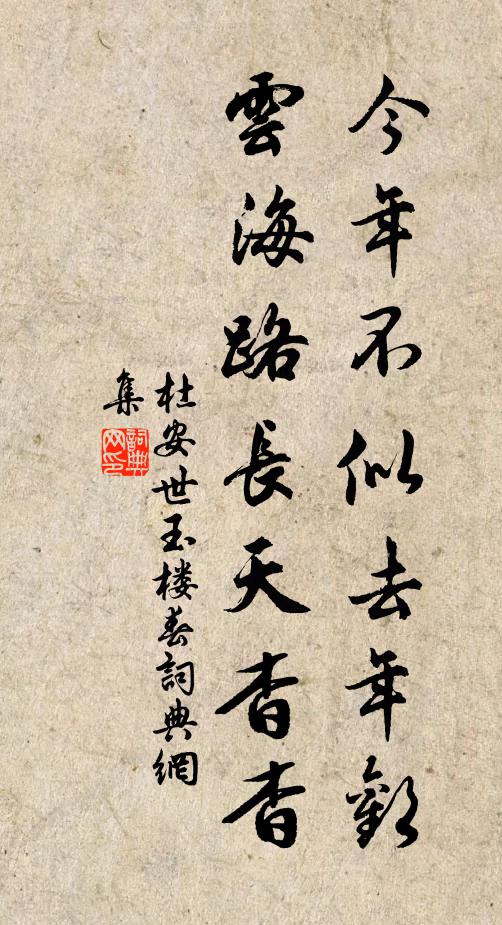 今年不似去年歡
雲海路長天杳杳
杜安世玉楼春詞典網
集
詞典网印